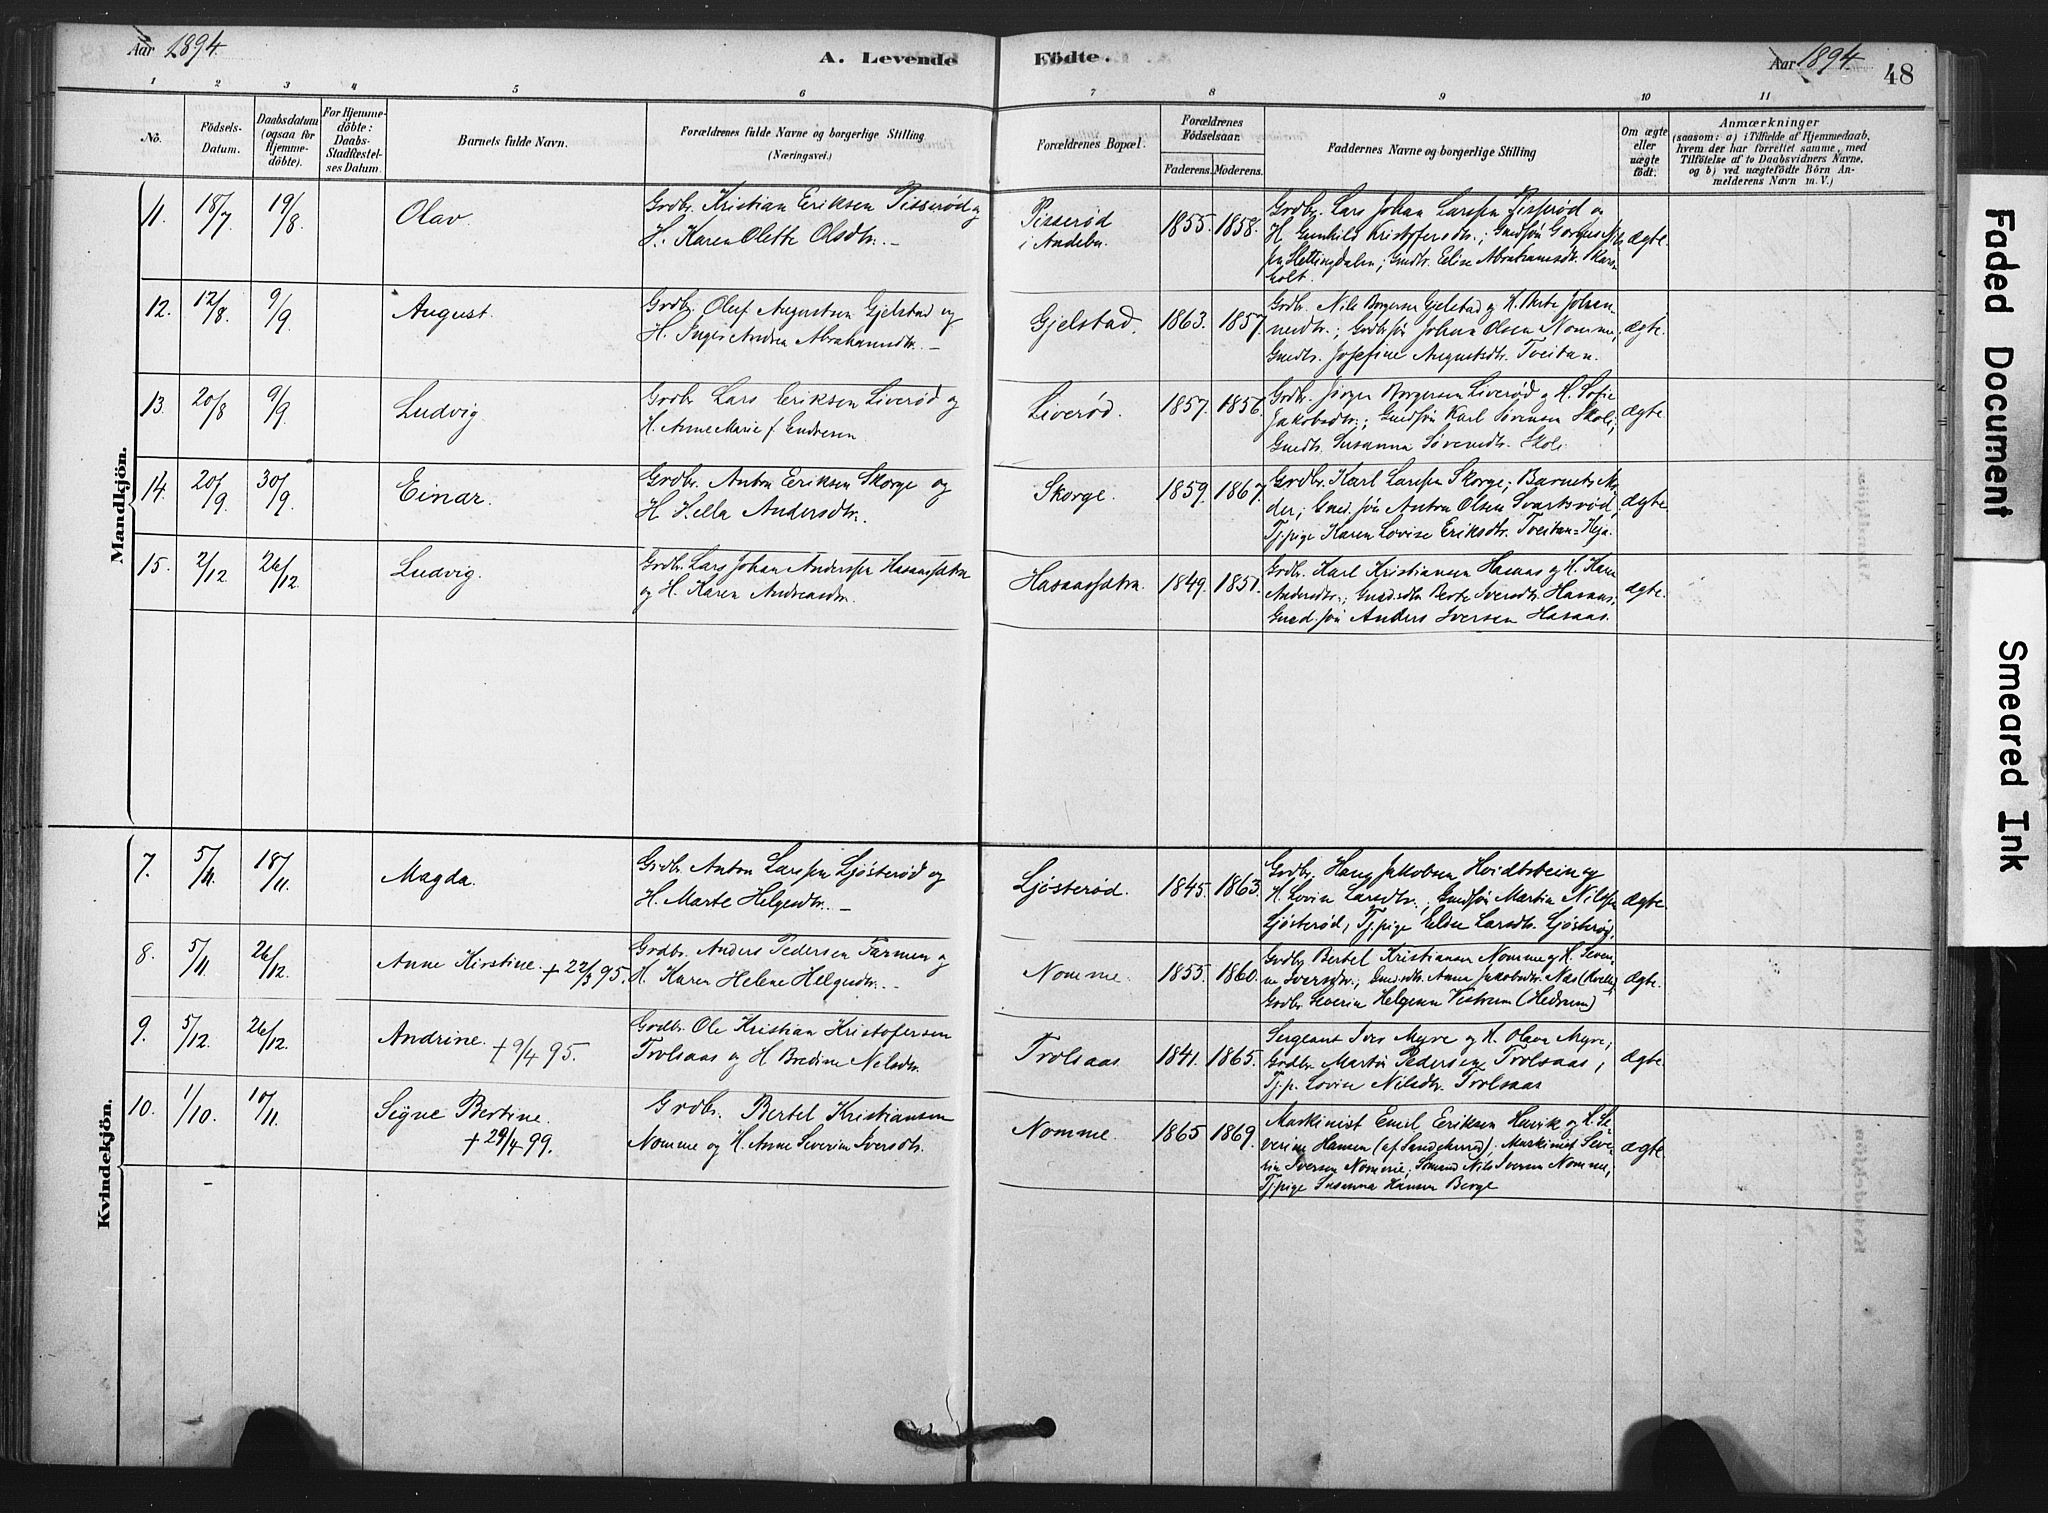 Aar 1894.
A. Levende
Födte.
Aar 1894.
48
1 2 3 4 5 6 7 8 9 10 11
No.
Födsels-
Datum.
Daabsdatum
(ogsaa for
Hjemme-
döbte).
For Hjemme-
döbte:
Daabs-
Stadfæstel-
ses Datum.
Barnets fulde Navn.
Forældrenes fulde Navne og borgerlige Stilling
(Næringsvei.)
Forældrenes Bopæl.
Forældrenes
Födselsaar.
Faderens. Moderens.
Faddernes Navne og borgerlige Stilling
Om ægte
eller
uægte
födt.
Anmærkninger
(saasom: a) i Tilfælde af Hjemmedaab,
hvem der har forrettet samme, med
Tilföielse af to Daabsvidners Navne,
og b) ved uægtefödte Börn An-
melderens Navn m. V.)
Mandkjön.
11. 18/7 19/8 Olav
Grdbr. Kristian Eriksen Pisserød og
H. Karen Olette Olsdtr. –
Pisserød
i Andebu
1855. 1858.
Grdbr. Lars Johan Larssen Pisserød og
H. Gunhild Kristofersdtr.; Gmdsøn
Hettingdalen; Gmdtr. Elise Abrahamsdtr. Skars-
holt.
ægte.
12. 12/8. 9/9 August.
Grdbr. Oluf Augustsen Gjelstad og
H. Inger Andrea Abrahamsdtr. –
Gjelstad.
1863. 1857.
Grdbr. Nils Borgersen Gjelstad og H. Berte Johan-
nesdtr.; Grdbrsøn Johan Olsen Nomme,
Gmdtr. Josefine Augustsdtr. Tveitan.
ægte.
13. 20/8 9/9 Ludvig.
Grdbr. Lars Eriksen Liverød og
H. Anne Marie f. Endresen
Liverød.
1857. 1856.
Grdbr. Jörgen Borgersen Liverød og H. Sofie
Jakobsdtr.; Gmdsøn Karl Sørensen Skoli;
Gmdtr. Susanna Sørensdtr. Skoli
ægte.
14. 20/9 30/9 Einar.
Grdbr. Anton Eriksen Skorge og
H. Hella Andersdtr.
Skorge.
1859. 1867.
Grdbr. Karl Larssen Skorge; Barnets Mo-
der; Gmd.søn Anton Olsen Svartsrød,
Tj.pige Karen Lovise Eriksdtr. Tveitan-Heja.
ægte
15. 2/12 26/12. Ludvig.
Grdbr. Lars Johan Anderssen Hasaassætra
og H. Karen Andreasdtr.
Hasaassætra.
1849. 1851.
Grdbr. Karl Kristiansen Hasaas og H. Karen
Andersdtr.; Gmd.dtr. Berte Iversdtr. Hasaas,
Gmd.søn Anders Iversen Hasaas.
ægte.
Kvindekjön.
7. 5/11. 18/11. Magda.
Grdbr. Anton Larssen Ljösterød og
H. Marte Helgesdtr. –
Ljösterød.
1845. 1863.
Grdbr. Hans Jakobsen Hvidtstein og
H. Lovise Larsdtr.; Gmdsøn Martin Nilssen
Ljösterød, Tj.pige Elise Larsdtr. Ljösterød.
ægte
8. 5/11 26/12. Anne Kirstine. + 22/3 95.
Grdbr. Anders Pedersen Farmen og
H. Karen Helene Helgesdtr. –
Nomme.
1855. 1860.
Grdbr. Bertel Kristiansen Nomme og H. Seve-
rine Iversdtr.; Gmd.dtr. Anna Jakobsdtr. Næs
Grdbr. Severin Helgesen Vestrum (Hedrum)
ægte.
9. 5/12. 26/12. Andrine. + 9/4 95.
Grdbr. Ole Kristian Kristofersen
Trolsaas og H. Bredine Nilsdtr.
Trolsaas
1841. 1865.
Sergeant Iver Myre og H. Olava Myre;
Grdbr. Martin Pedersen Trolsaas;
Tj.p. Lovise Nilsdtr. Trolsaas
ægte.
10. 1/10. 10/11. Signe Bertine.
+ 29/4 99.
Grdbr. Bertel Kristiansen
Nomme og H. Anne Severine Iversdtr.
Nomme.
1865 1869.
Maskinist Emil Eriksen Hasvik og H. Se-
verine Hansen (af Sandeherred); Maskinist Seve-
rin Iversen Nomme; Sömand Nils Iversen Nomme,
Tj.pige Susanna Hansen Berge
ægte
Faded Document
Smeared Ink